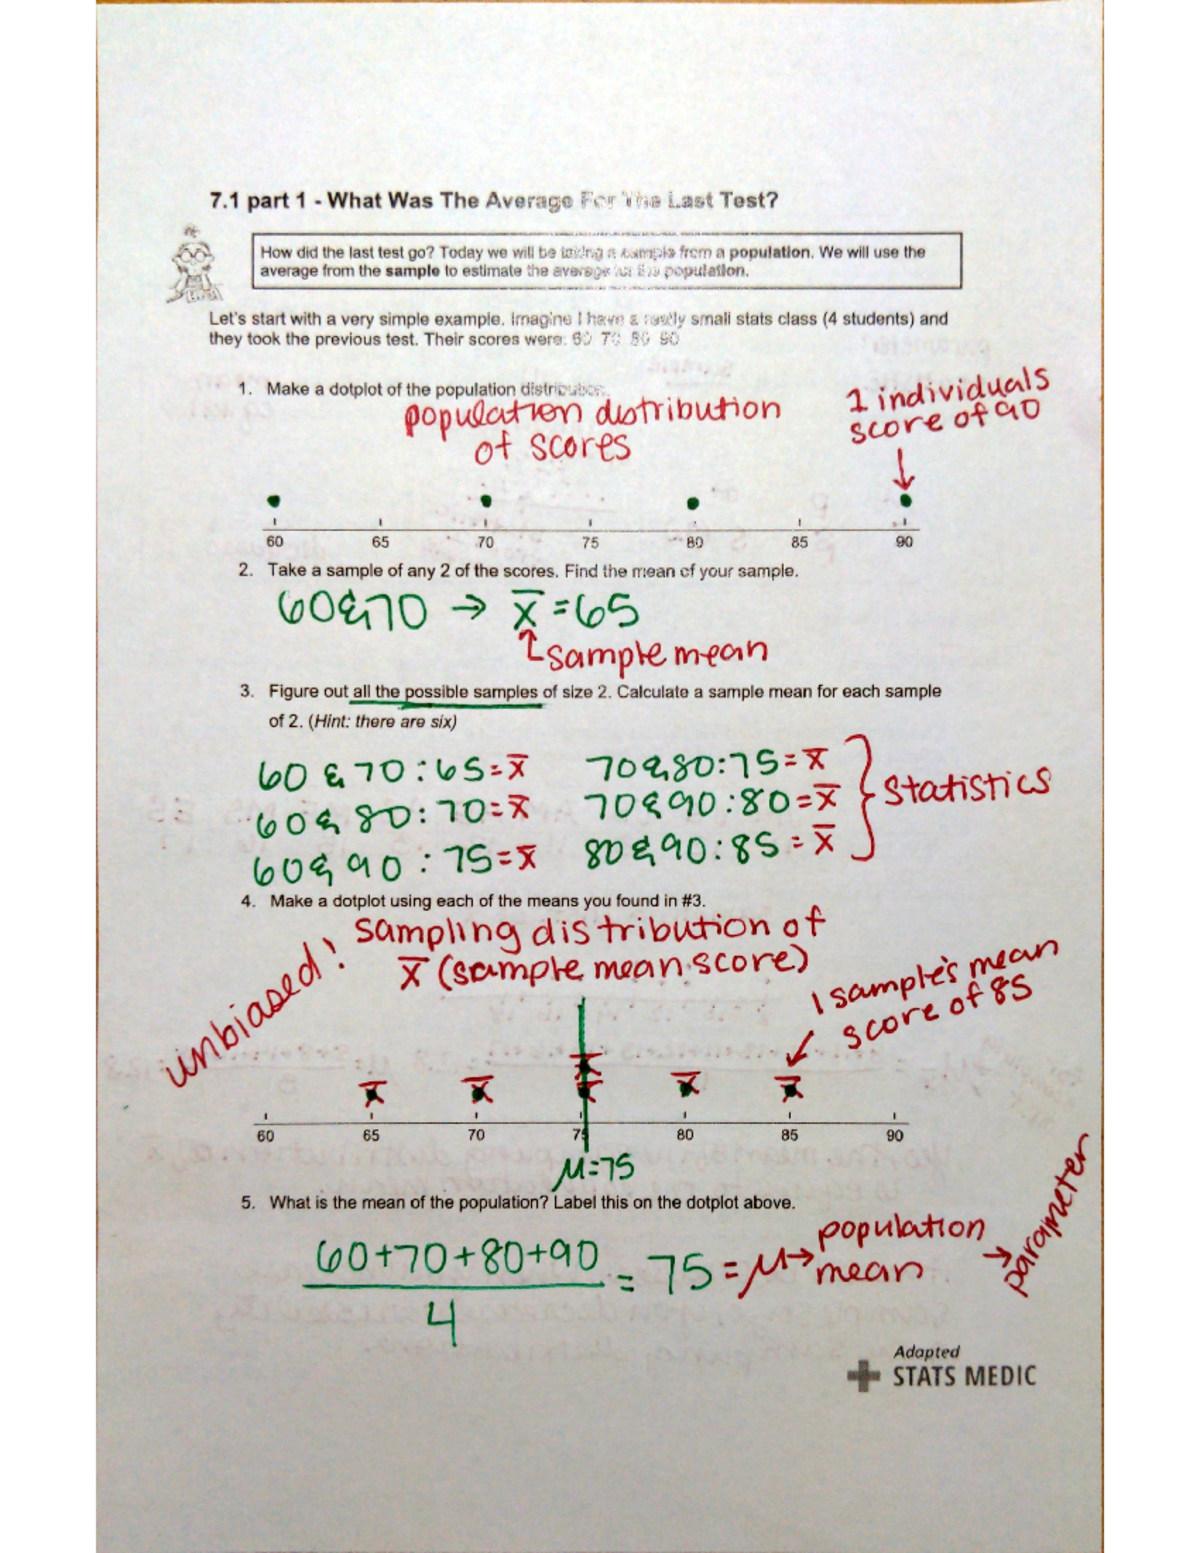 7.1 part 1 - What Was The Average For The Last Test?
How did the last test go? Today we will be taking a sample from a population. We will use the
average from the sample to estimate the average for the population.
Let's start with a very simple example. Imagine I have a really small stats class (4 students) and
they took the previous test. Their scores were: 60 70 80 90
1. Make a dotplot of the population distribution.
population distribution
of scores
1 individuals
score of 90
60 65 70 75 80 85 90
2. Take a sample of any 2 of the scores. Find the mean of your sample.
60 & 70 → x̄ = 65
sample mean
3. Figure out all the possible samples of size 2. Calculate a sample mean for each sample
of 2. (Hint: there are six)
60 & 70 : 65 = x̄ 70 & 80 : 75 = x̄
60 & 80 : 70 = x̄ 70 & 90 : 80 = x̄ } Statistics
60 & 90 : 75 = x̄ 80 & 90 : 85 = x̄
4. Make a dotplot using each of the means you found in #3.
unbiased!
sampling distribution of
x̄ (sample mean score)
1 sample's mean
score of 85
x̄
x̄ x̄ x̄ x̄ x̄
60 65 70 75 80 85 90
μ=75
5. What is the mean of the population? Label this on the dotplot above.
60+70+80+90
4
= 75 = μ → population
mean → parameter
Adapted
STATS MEDIC